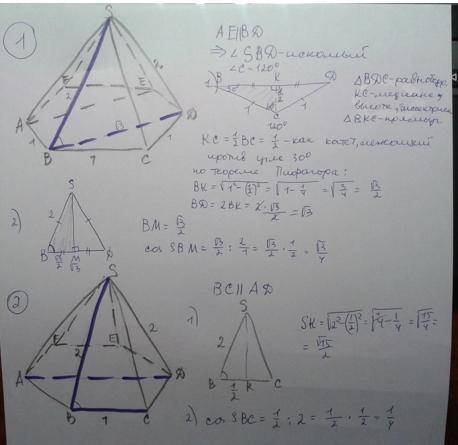 1
S
A
B
C
D
E
E
2
2
1
1
1
√3
AE||BD
⇒ ∠SBD-искомый
∠C-120°
B
K
D
1
1
C
120°
ΔBDC-равнобедр.
KC-медиана,
высота, биссектриса
ΔBKC-прямоуг.
KC = 1/2 BC = 1/2 - как катет, лежащий
против угла 30°
по теореме Пифагора:
BK = √(1² - (1/2)²) = √(1 - 1/4) = √(3/4) = √3/2
BD = 2BK = 2·√3/2 = √3
2)
S
2
B
√3/2
M
D
√3
BM = √3/2
cos SBM = √3/2 : 2/1 = √3/2 · 1/2 = √3/4
2
S
A
B
C
D
E
E
2
2
1
BC || AD
1)
S
2
B
1/2
K
C
SK = √(2² - (1/2)²) = √(4 - 1/4) = √(15/4) =
= √15/2
2) cos SBC = 1/2 : 2 = 1/2 · 1/2 = 1/4